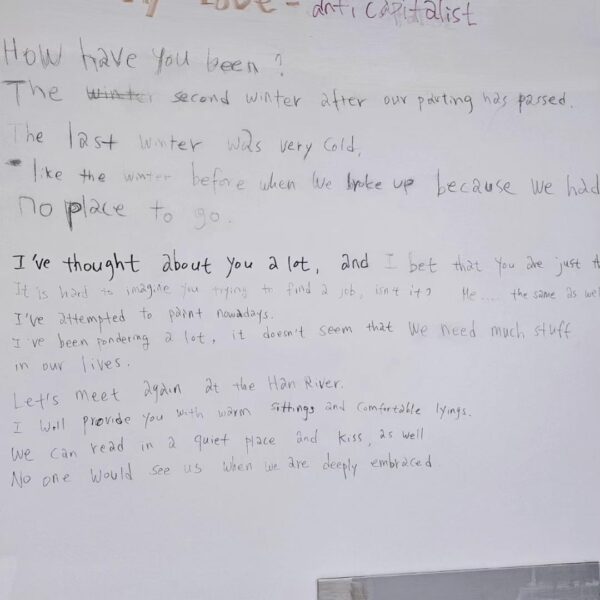 My Love - anticapitalist
How have you been?
The winter second winter after our parting has passed.
The last winter was very cold,
like the winter before when we broke up because we had
no place to go.
I've thought about you a lot, and I bet that you are just th
It is hard to imagine you trying to find a job, isn't it? Me.... the same as wel
I've attempted to paint nowadays.
I've been pondering a lot, it doesn't seem that we need much stuff
in our lives.
Let's meet again at the Han River.
I will provide you with warm sittings and comfortable lyings.
We can read in a quiet place and kiss, as well
No one would see us when we are deeply embraced.